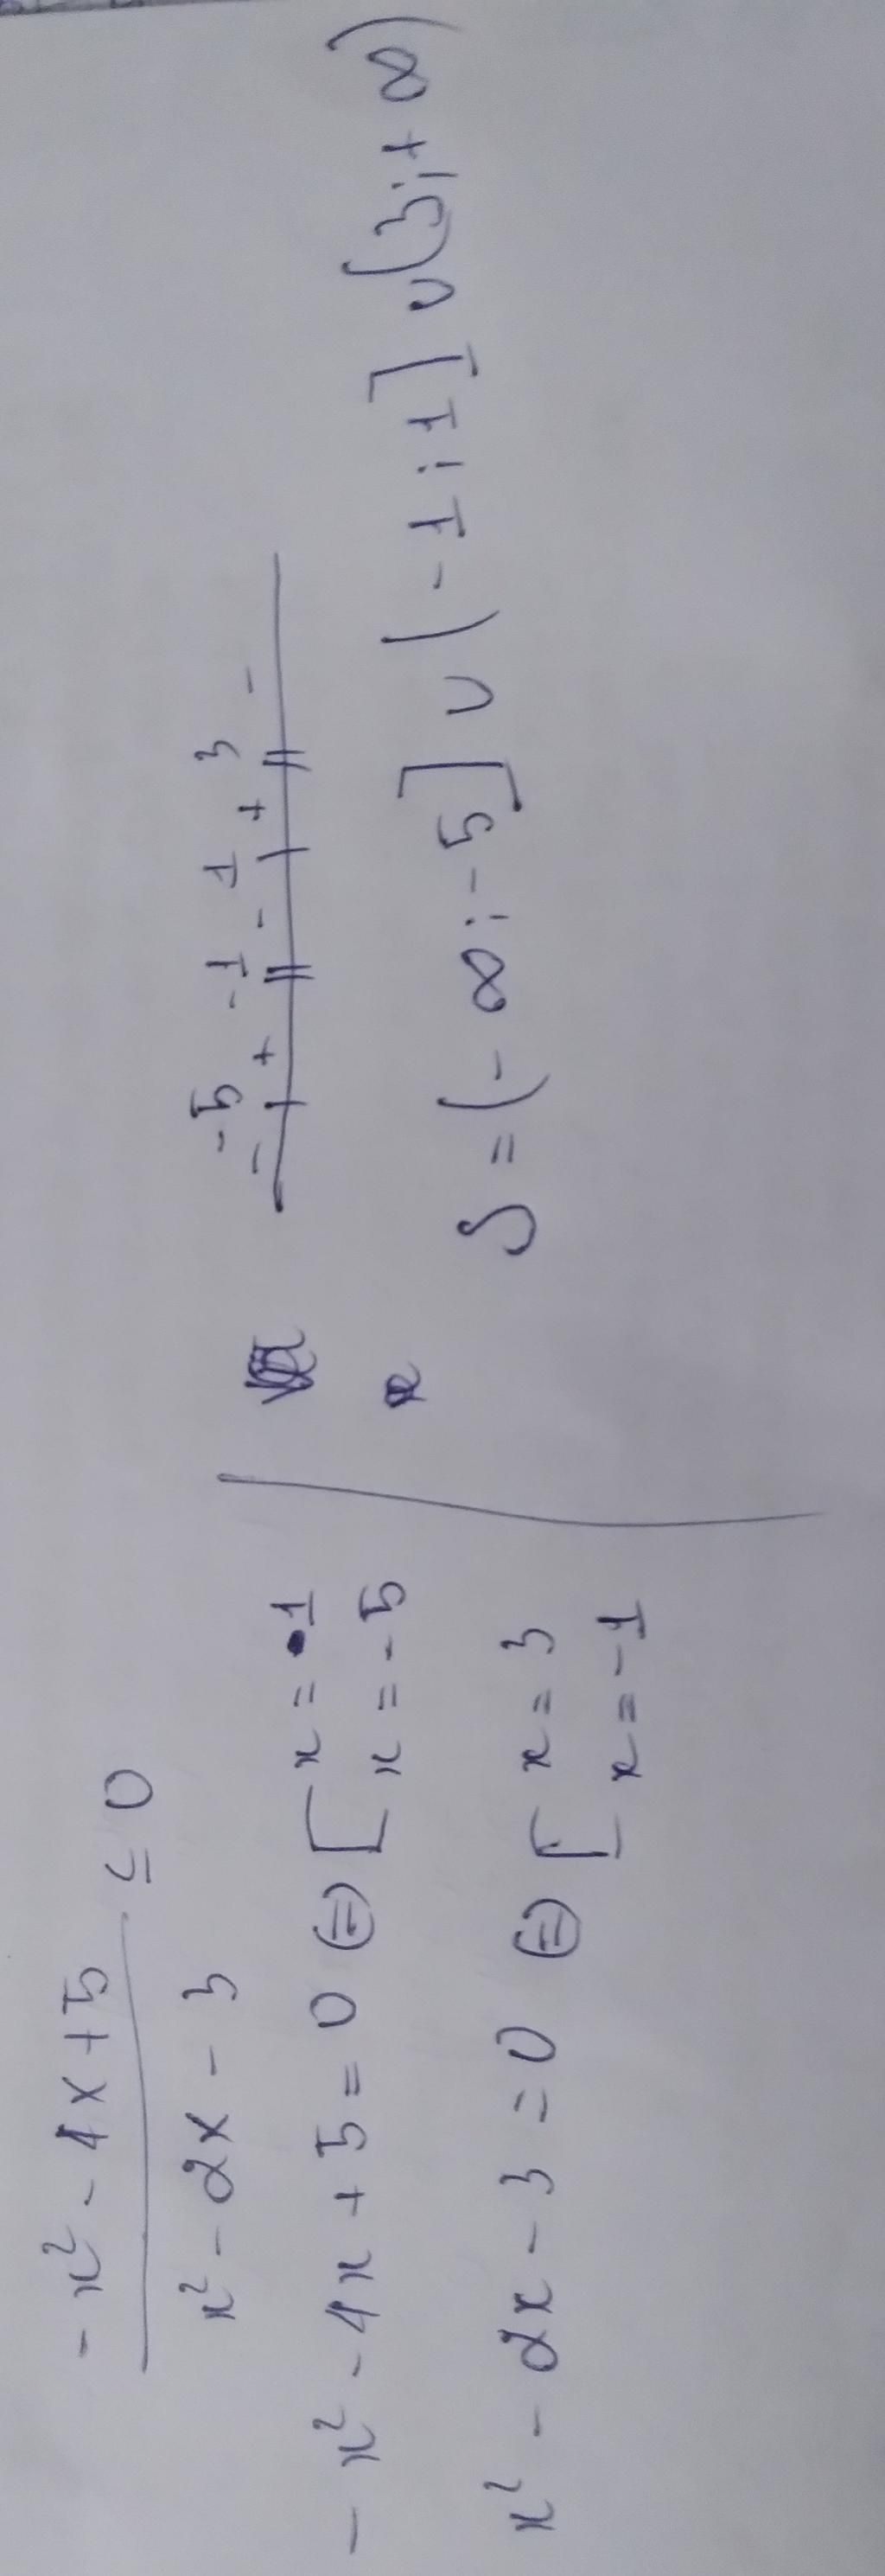 -x² - 4x + 5
≤ 0
x² - 2x - 3
-x² - 4x + 5 = 0 ⇔ [ x = 1
x = -5
x² - 2x - 3 = 0 ⇔ [ x = 3
x = -1
-5 -1 1 3
- + - + -
S = (-∞; -5] ∪ (-1; 1] ∪ (3; +∞)